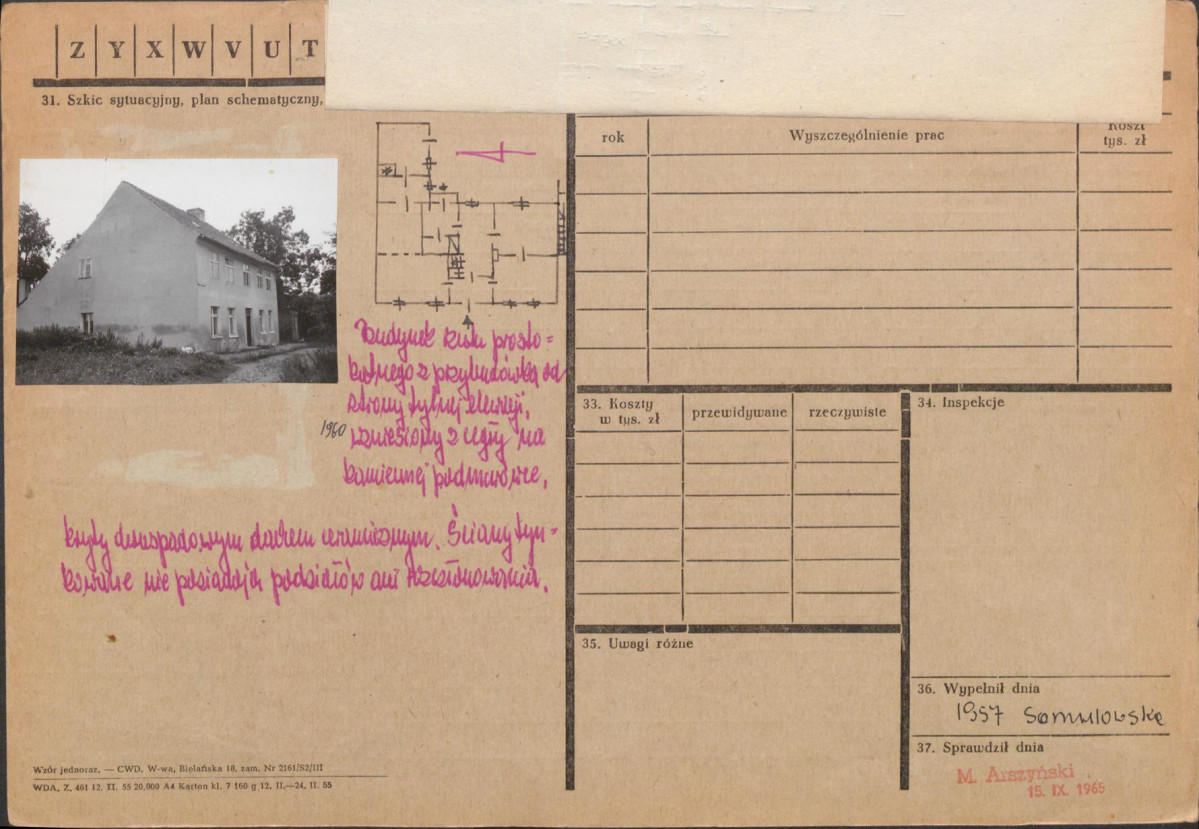 Z Y X W V U T
31. Szkic sytuacyjny, plan schematyczny,
Budynek rzutu prosto=
kątnego z przybudówką od
strony tylnej elewacji,
1960
wzniesiony z cegły na
kamiennej podmurówce,
kryty dwuspadowym dachem ceramicznym. Ściany tyn=
kowane nie posiadają podziałów ani rozczłonkowania.
Wzór jednoraz. — CWD, W-wa, Bielańska 18, zam. Nr 2161/S2/III
WDA. Z. 461 12. II. 55 20.000 A4 Karton kl. 7 160 g 12. II.—24. II. 55
rok
Wyszczególnienie prac
Koszt
tys. zł
33. Koszty
w tys. zł
przewidywane
rzeczywiste
34. Inspekcje
35. Uwagi różne
36. Wypełnił dnia
1957 Samulowska
37. Sprawdził dnia
M. Arszyński
15. IX. 1965